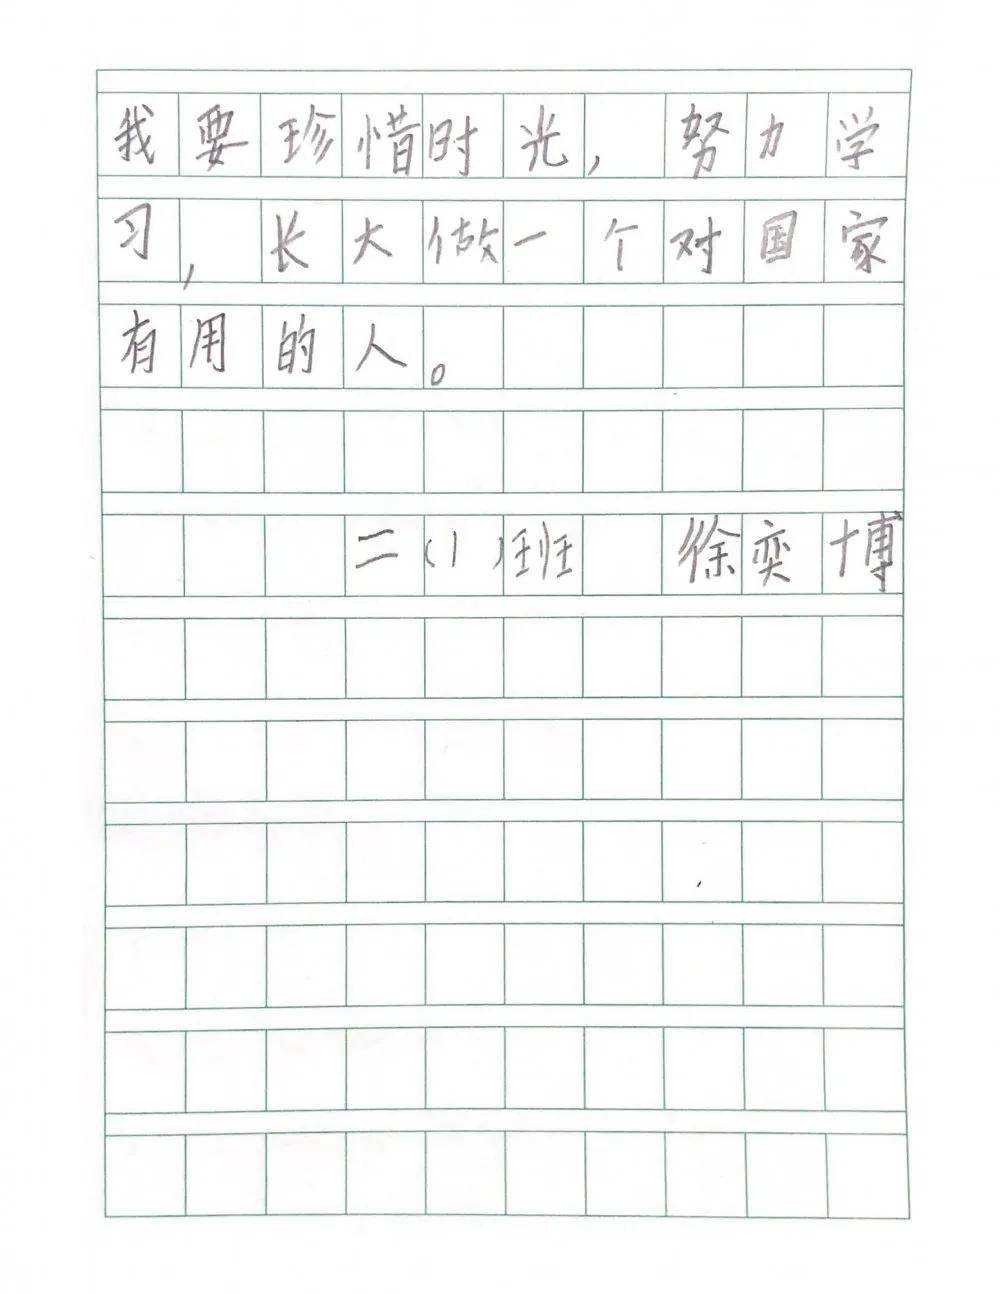 我要珍惜时光,努力学
习,长大做一个对国家
有用的人。
二(1)班 徐奕博